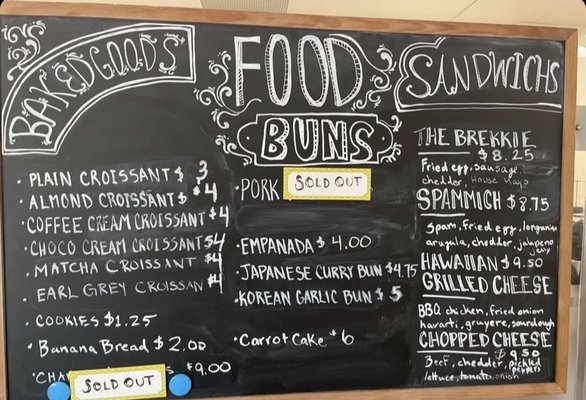 BAKED GOODS
PLAIN CROISSANT $ 3
ALMOND CROISSANT $ $4
COFFEE CREAM CROISSANT $4
CHOCO CREAM CROISSANT $4
MATCHA CROISSANT $4
EARL GREY CROISSAN $4
COOKIES $1.25
Banana Bread $ 2.00
CHA $9.00
SOLD OUT
FOOD
BUNS
PORK SOLD OUT
EMPANADA $ 4.00
JAPANESE CURRY BUN $4.75
KOREAN GARLIC BUN $ 5
Carrot Cake $ 6
SANDWICHS
THE BREKKIE
$ 8.25
Fried egg, sausage,
chedder, House Mayo
SPAMMICH $8.75
Spam, fried egg, longanisa
arugala, chedder, jalapeno
HAWAIIAN $9.50
GRILLED CHEESE
BBQ chicken, fried onion
havarti, gruyere, sourdough
CHOPPED CHEESE
$9.50
Beef, chedder, pickled
peppers
lettuce, tomato, onion